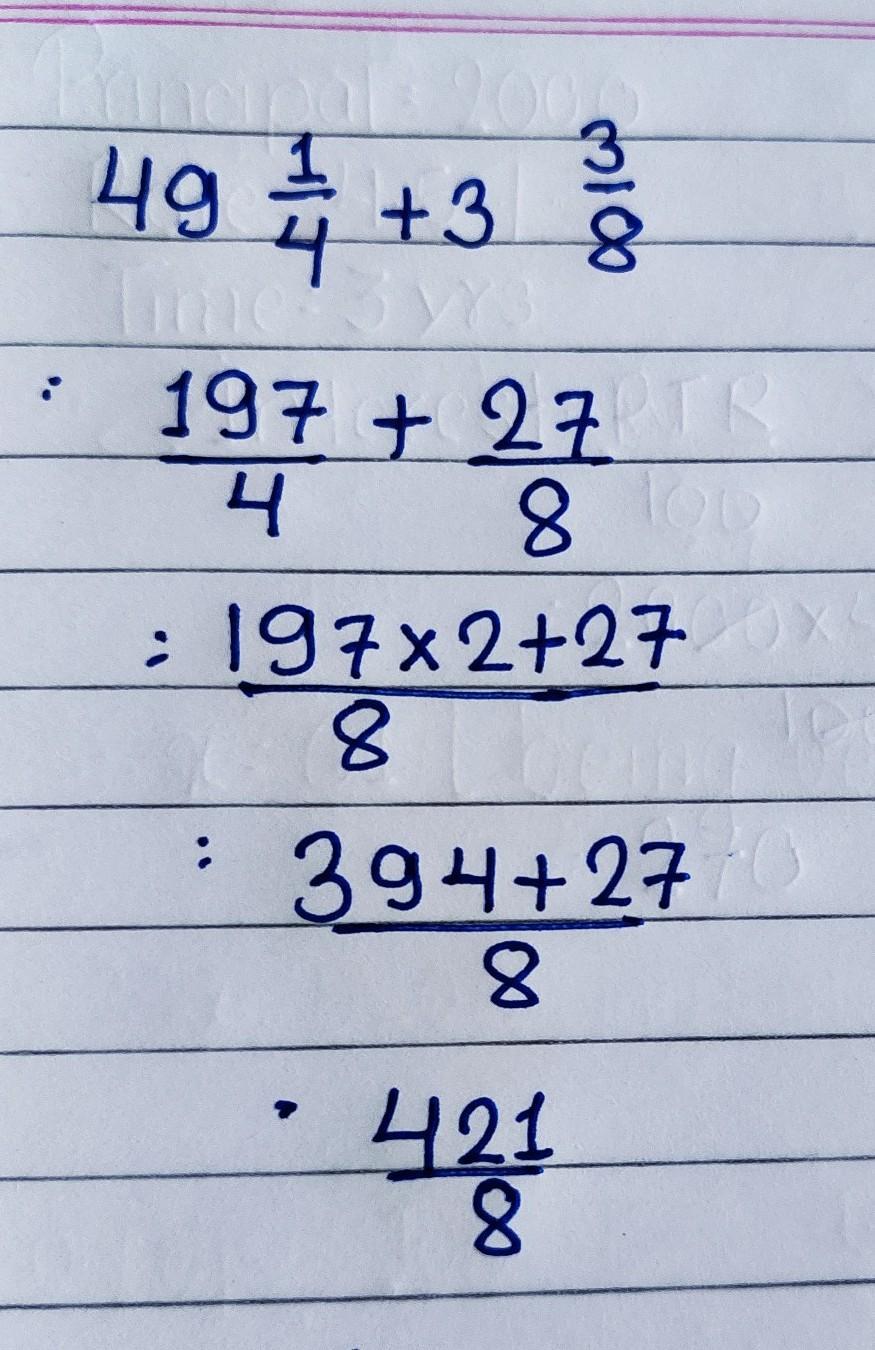 49 1/4 + 3 3/8
: 197/4 + 27/8
: 197×2+27/8
: 394+27/8
· 421/8